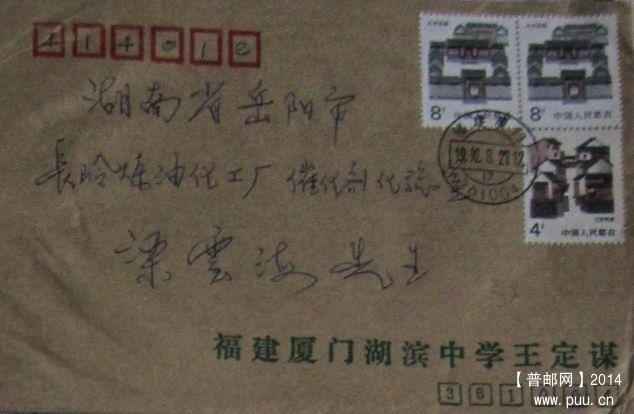 414012
8分
8分
中国人民邮政
中国人民邮政
湖南省岳阳市
1992.8.21.12
361004
4分
中国人民邮政
長岭炼油化工厂催化剂化验室
梁雲海先生
福建厦门湖滨中学王定谋
361004
【普邮网】2014
www.puu.cn